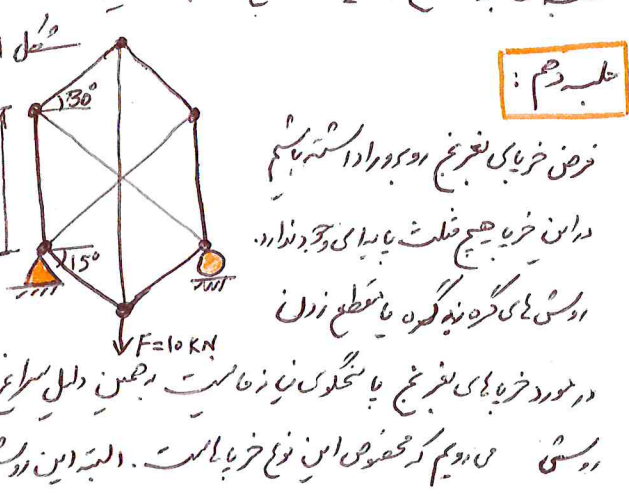 شکل
30°
مطلب دهم :
فرض خرپای بغرنج روبرو را داشته باشیم
در این خرپا هیچ مثلث پایداری وجود ندارد.
15°
روش های گره به گره یا مقطع زدن
F=10KN
در مورد خرپاهای بغرنج پاسخگوی نیاز ما نیست به همین دلیل سراغ
روشی می رویم که مخصوص این نوع خرپاهاست. البته این روش